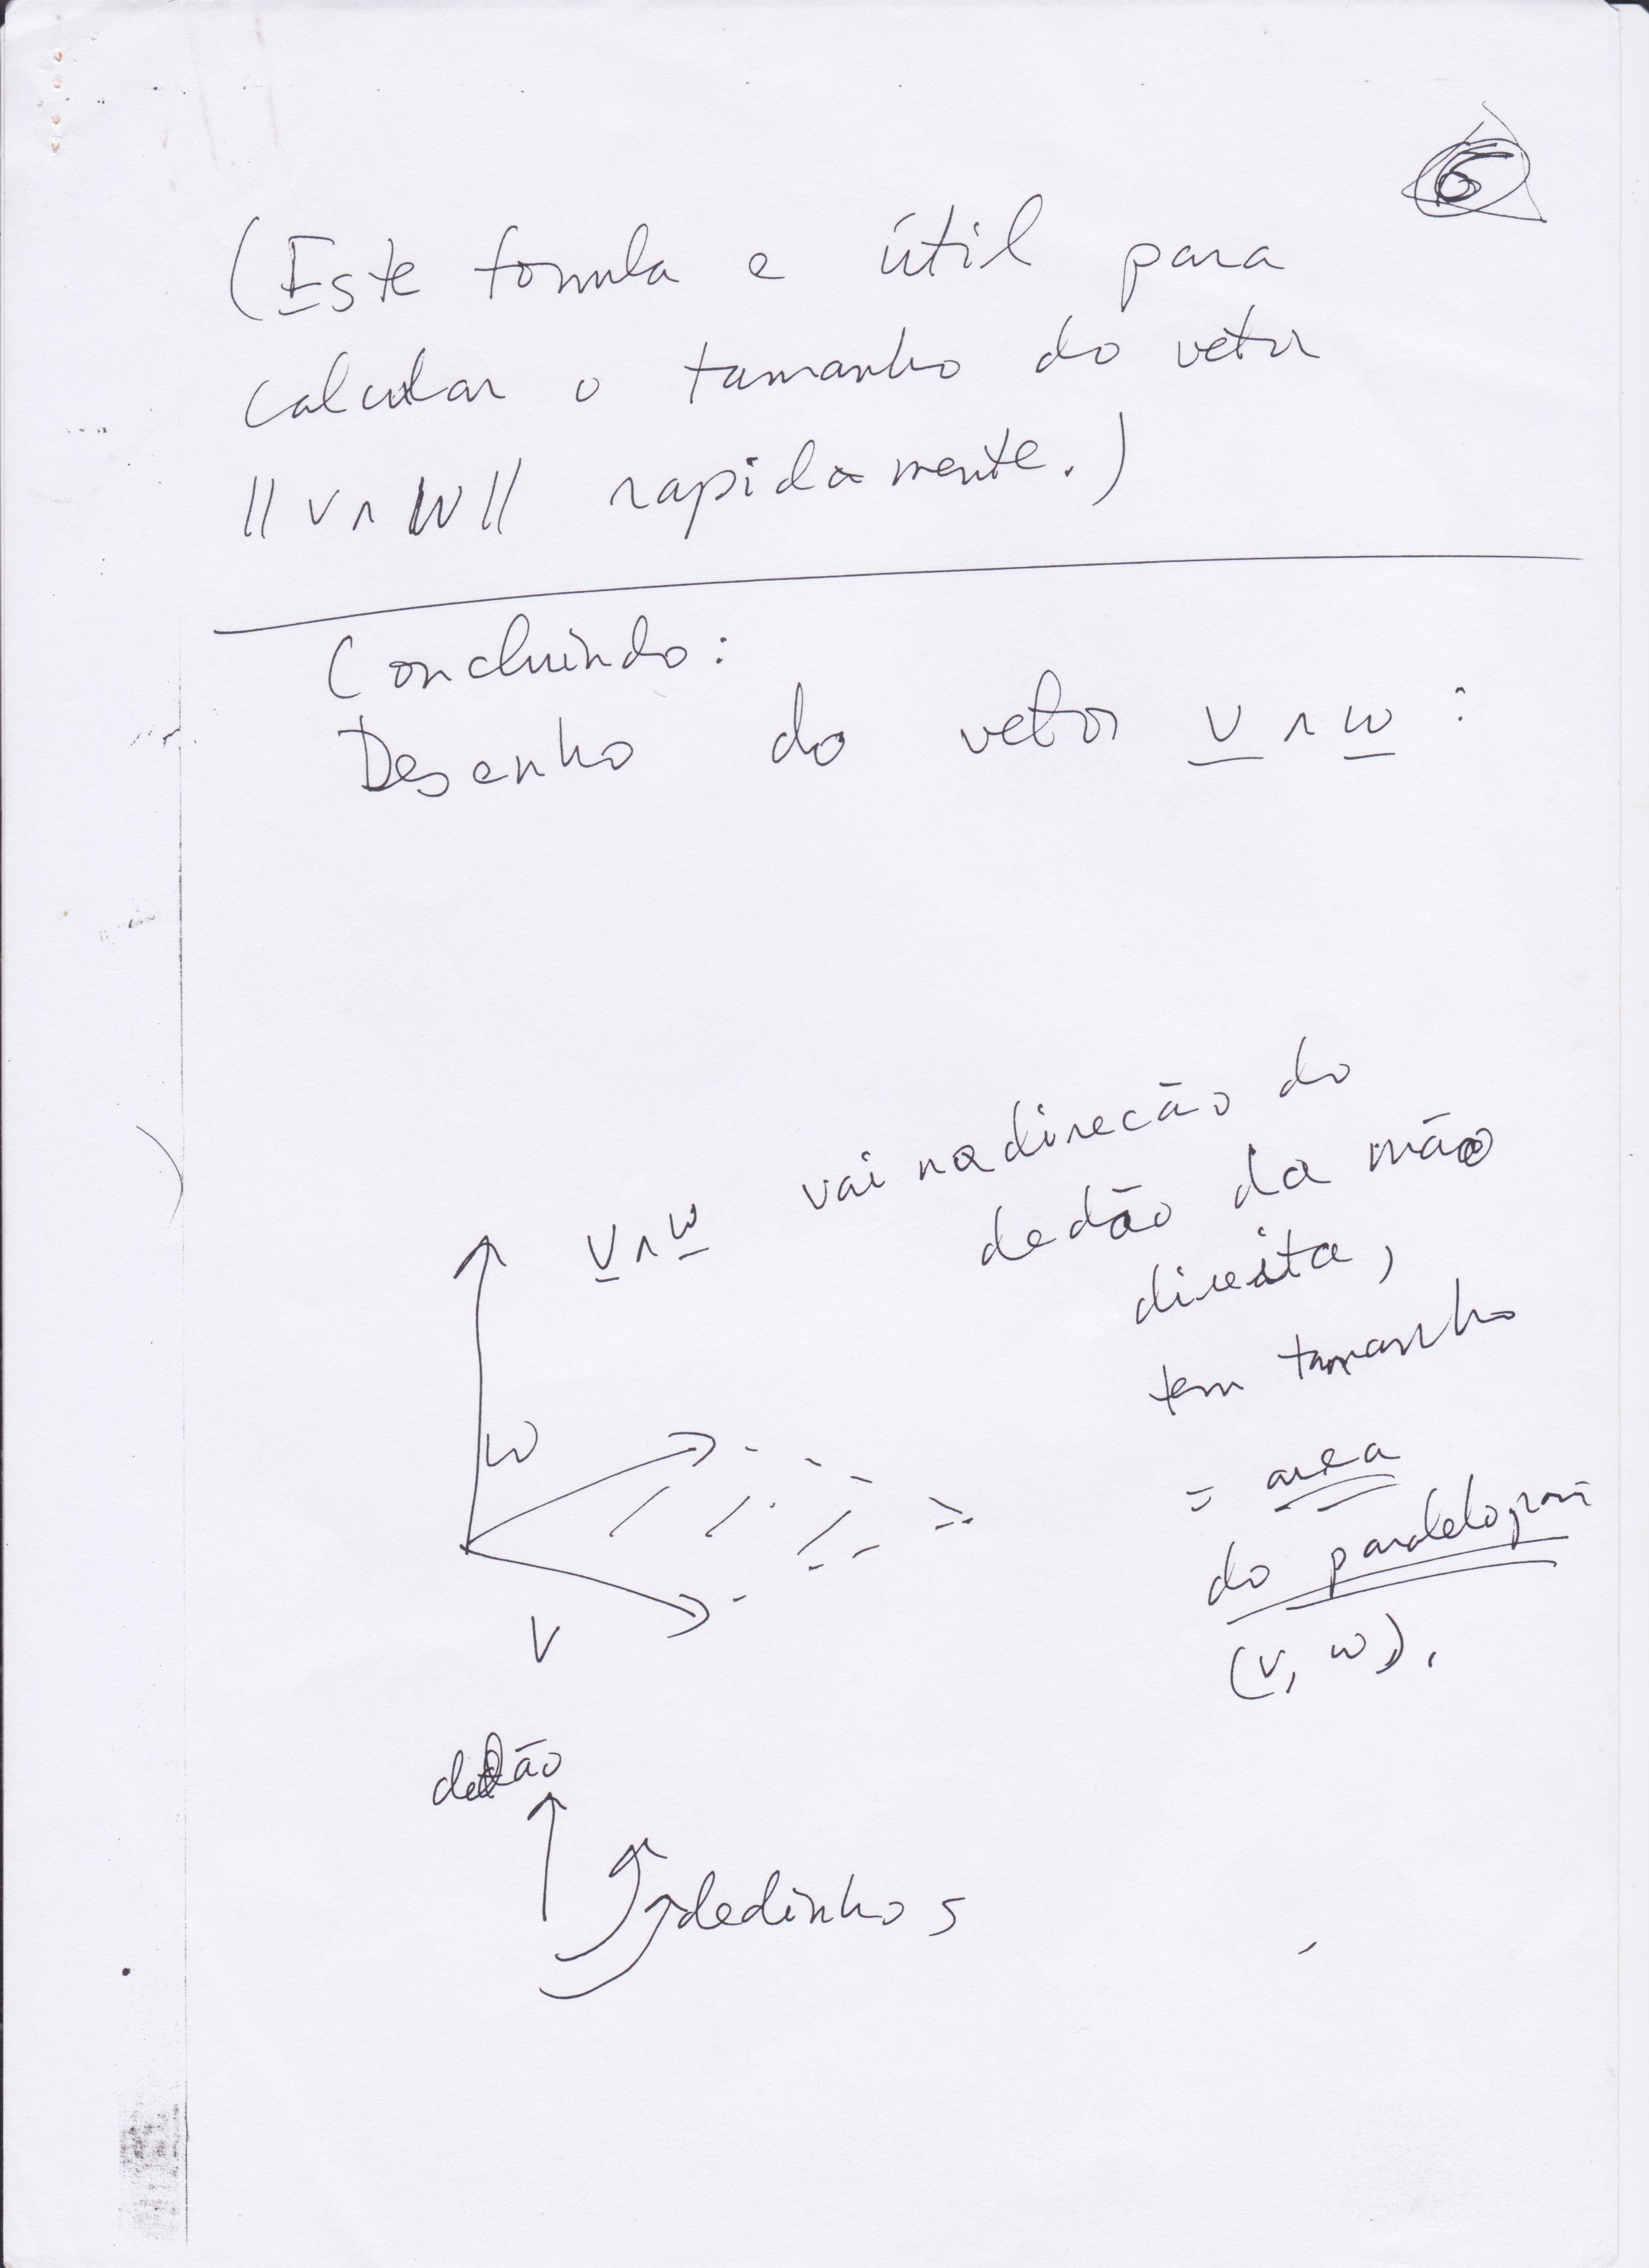 6
(Este fomula e útil para
calcular o tamanho do vetor
|| v ∧ w || rapidamente.)
Concluindo:
Desenho do vetor v ∧ w :
v ∧ w vai na direcão do
dedão da mão
direita,
tem tamanho
= area
do
(v, w).
w
v
dedão
dedinhos